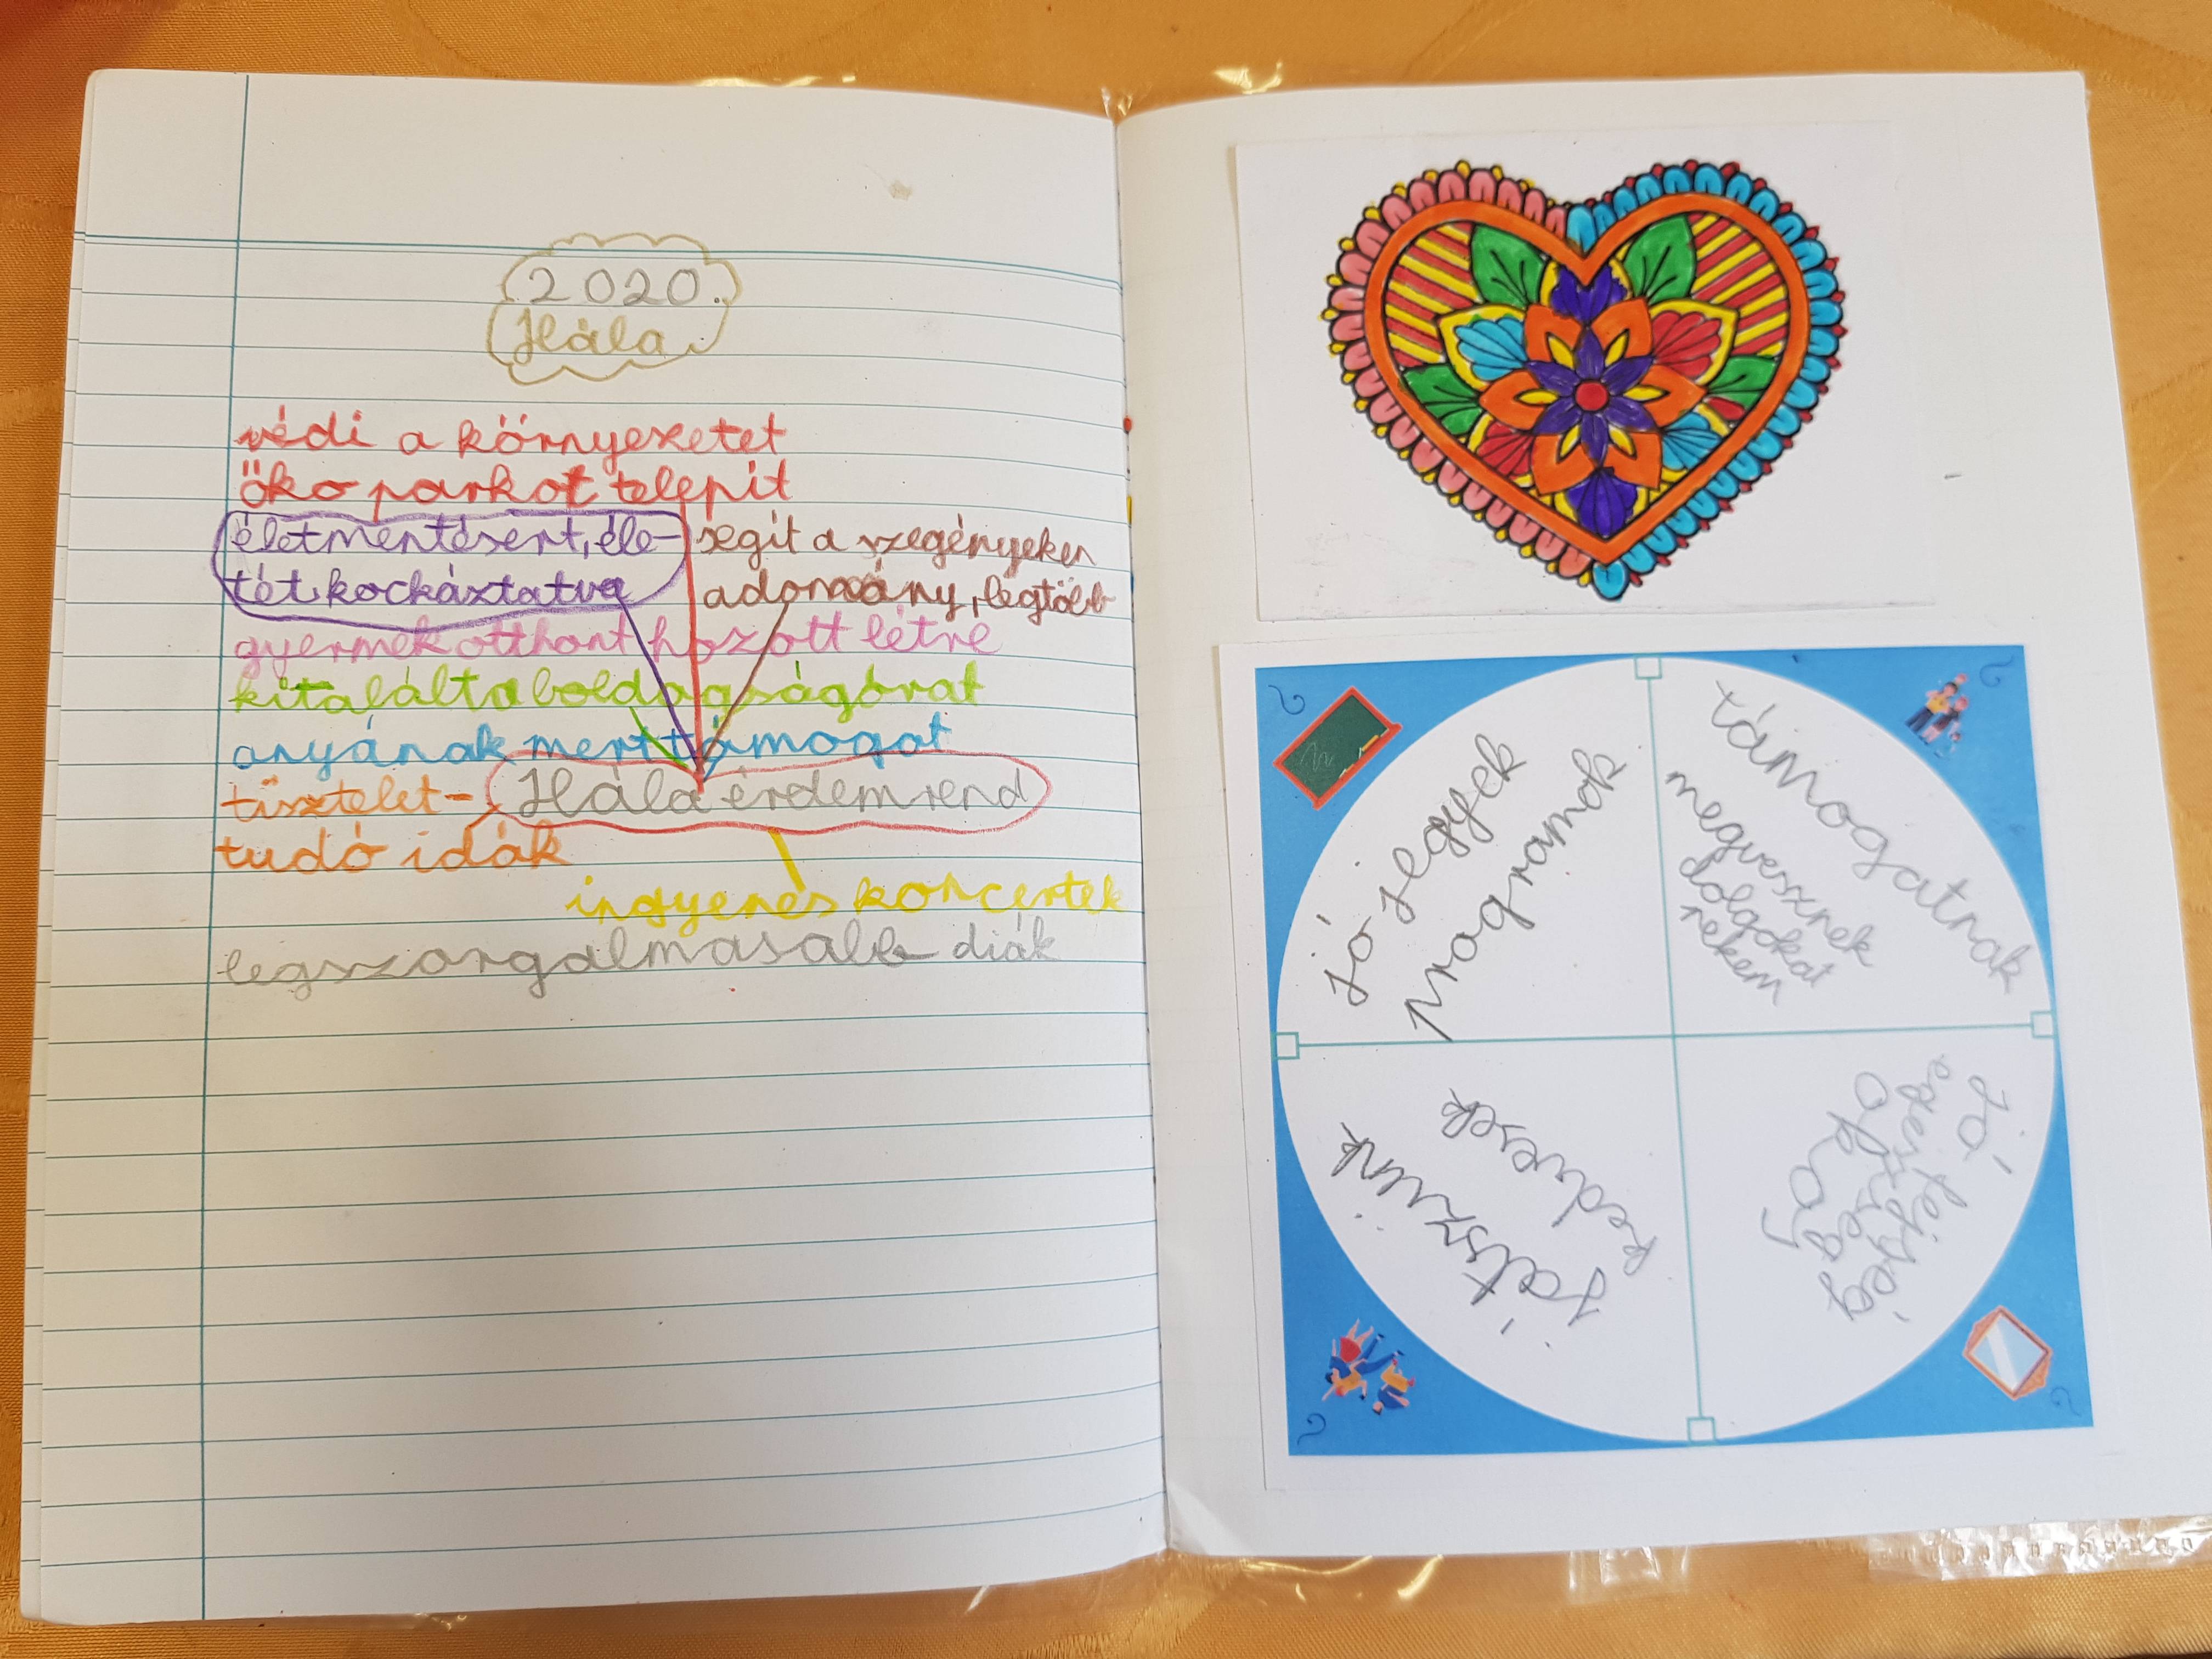 2020.
Hála
védi a környezetet
öko parkot telepít
életmentésért, éle-
tét kockáztatva
segít a szegényeken
adomány, legtöbb
gyermekotthont hozott létre
kitalálta boldogságórat
anyának mert támogat
tisztelet-
Hála érdemrend
tudó idák
ingyenes koncertek
legszorgalmasabb diák
jó jegyek
programok
támogatnak
megvesznek
dolgokat
nekem
játszunk
kedvesek
jó
egészség